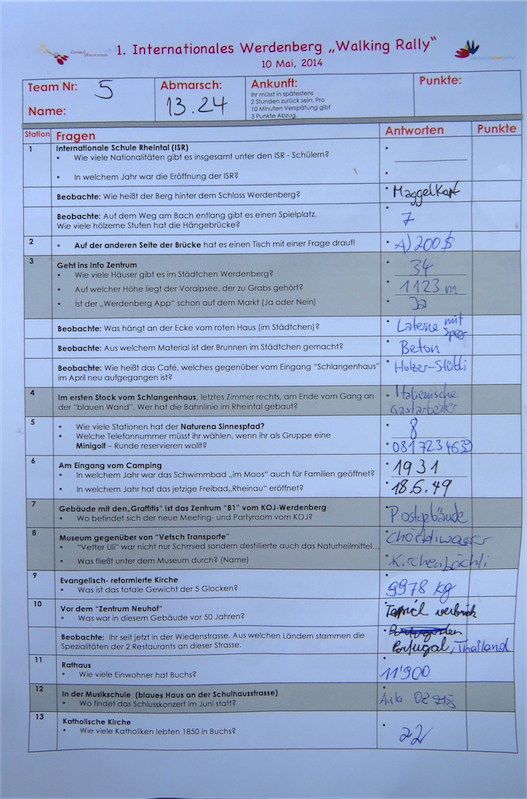 1. Internationales Werdenberg „Walking Rally“
10 Mai, 2014
Team Nr: 5
Name:
Abmarsch:
13.24
Ankunft:
Ihr müsst in spätestens
2 Stunden zurück sein. Pro
10 Minuten Verspätung gibt
3 Punkte Abzug
Punkte:
Station Fragen Antworten Punkte
1 Internationale Schule Rheintal (ISR)
• Wie viele Nationalitäten gibt es insgesamt unter den ISR - Schülern?
• In welchem Jahr war die Eröffnung der ISR?
Beobachte: Wie heißt der Berg hinter dem Schloss Werdenberg? Maggelkopf
Beobachte: Auf dem Weg am Bach entlang gibt es einen Spielplatz.
Wie viele hölzerne Stufen hat die Hängebrücke? 7
2 • Auf der anderen Seite der Brücke hat es einen Tisch mit einer Frage drauf! A) 200 $
3 Geht ins Info Zentrum
• Wie viele Häuser gibt es im Städtchen Werdenberg? 34
• Auf welcher Höhe liegt der Voralpsee, der zu Grabs gehört? 1123 m
• Ist der „Werdenberg App“ schon auf dem Markt (Ja oder Nein) Ja
Beobachte: Was hängt an der Ecke vom roten Haus (im Städtchen)? Laterne mit
Beobachte: Aus welchem Material ist der Brunnen im Städtchen gemacht? Beton
Beobachte: Wie heißt das Café, welches gegenüber vom Eingang “Schlangenhaus”
im April neu aufgegangen ist? Holzer-Stübli
4 Im ersten Stock vom Schlangenhaus, letztes Zimmer rechts, am Ende vom Gang an
der “blauen Wand”. Wer hat die Bahnlinie im Rheintal gebaut? Italienische
Gastarbeiter
5 • Wie viele Stationen hat der Naturena Sinnespfad? 8
• Welche Telefonnummer müsst ihr wählen, wenn ihr als Gruppe eine
Minigolf – Runde reservieren wollt? 0817234639
6 Am Eingang vom Camping
• In welchem Jahr war das Schwimmbad „im Moos“ auch für Familien geöffnet? 1931
• In welchem Jahr hat das jetzige Freibad„Rheinau“ eröffnet? 18.6.49
7 Gebäude mit den„Graffitis“ ist das Zentrum “B1” vom KOJ-Werdenberg
• Wo befindet sich der neue Meeting- und Partyroom vom KOJ? Postgebäude
8 Museum gegenüber von “Vetsch Transporte”
• “Vetter Uli” war nicht nur Schmied sondern destillierte auch das Naturheilmittel... Chörbliwasser
• Was fließt unter dem Museum durch? (Name) Kirchenbächli
9 Evangelisch- reformierte Kirche
• Was ist das totale Gewicht der 5 Glocken? 9978 kg
10 Vor dem “Zentrum Neuhof”
• Was war in diesem Gebäude vor 50 Jahren?
Beobachte: Ihr seit jetzt in der Wiedenstrasse. Aus welchen Ländern stammen die
Spezialitäten der 2 Restaurants an dieser Strasse. Portugal, Thailand
11 Rathaus
• Wie viele Einwohner hat Buchs? 11'900
12 In der Musikschule (blaues Haus an der Schulhausstrasse)
• Wo findet das Schlusskonzert im Juni statt? Aula
13 Katholische Kirche
• Wie viele Katholiken lebten 1850 in Buchs? 22